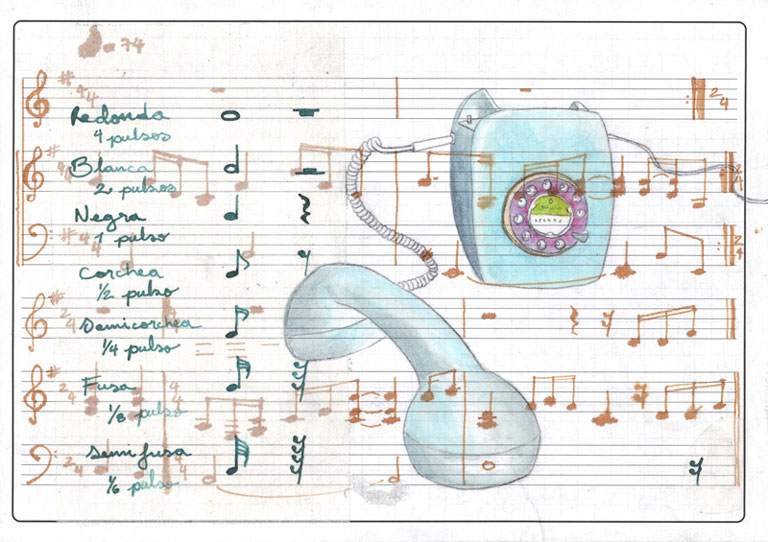 = 74
Redonda
4 pulsos
Blanca
2 pulsos
Negra
1 pulso
Corchea
1/2 pulso
Semicorchea
1/4 pulso
Fusa
1/8 pulso
Semifusa
1/6 pulso